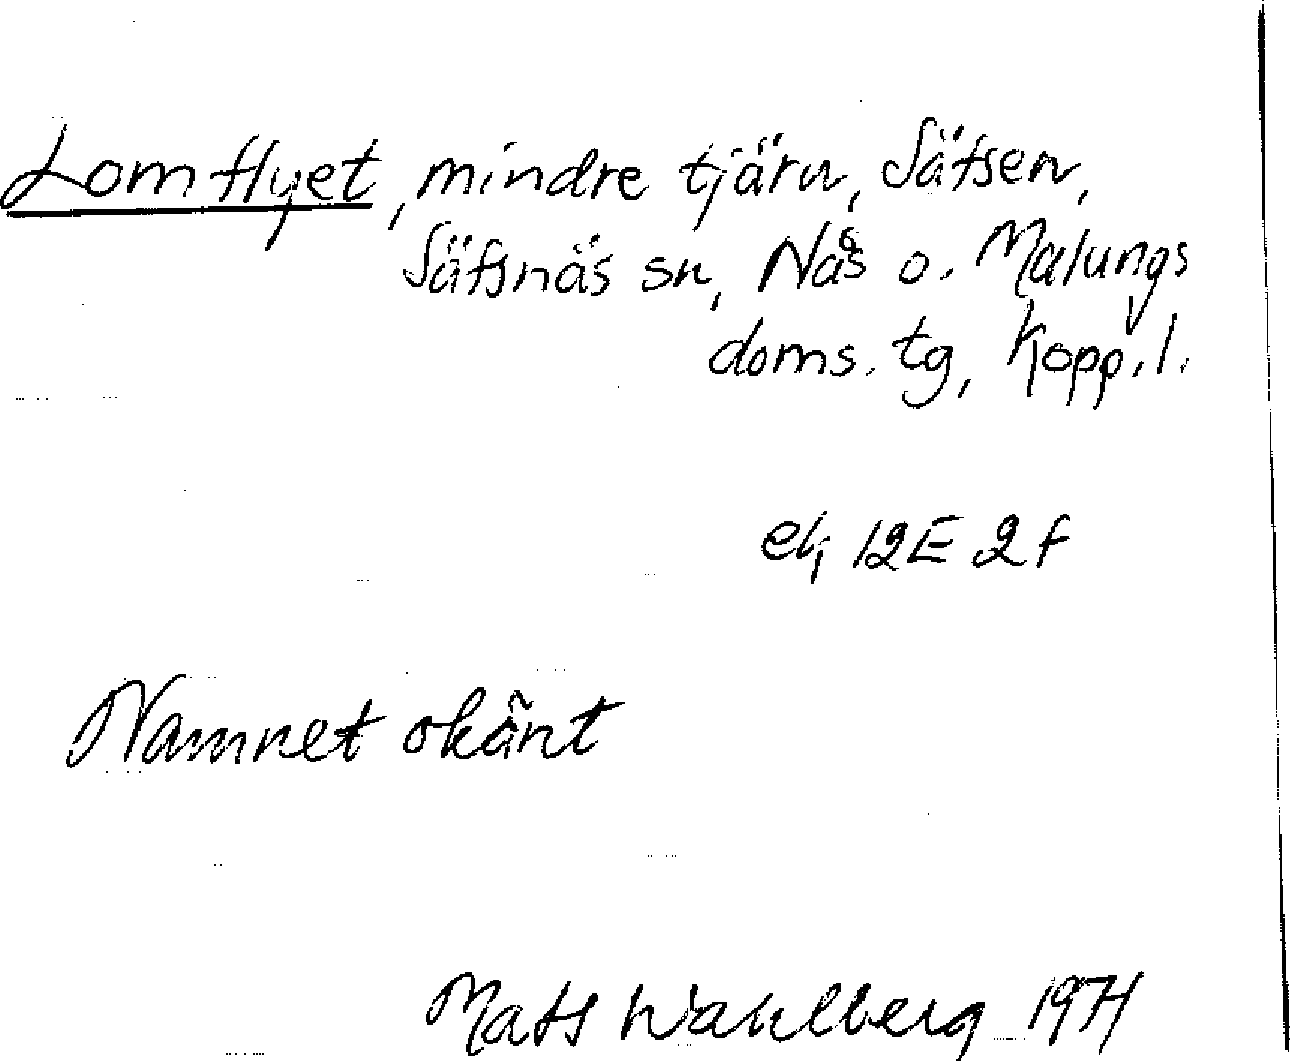 Lomflyet, mindre tjärn, Säfsen,
Säfsnäs sn, Nås o. Malungs
doms. tg, Kopp. l.
ek 12E 2f
Namnet okänt
Mats Wahlberg 1971